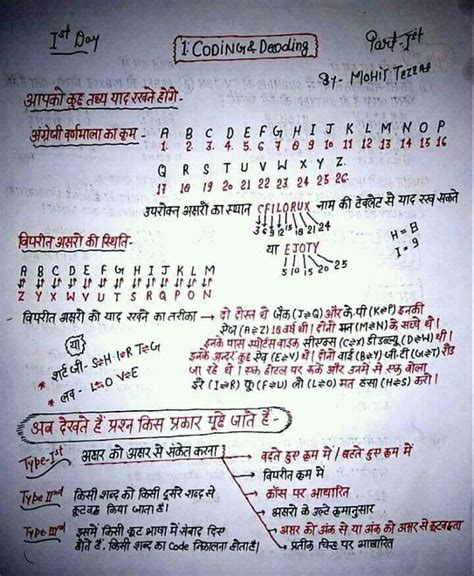 Ist Day
1. CODING & Decoding
Part-Ist
By- MOHIT
आपको कुछ तथ्य याद रखने होंगे -
अंग्रेजी वर्णमाला का क्रम - A B C D E F G H I J K L M N O P
1. 2. 3. 4. 5 6 7 8 9 10 11 12 13 14 15 16
Q R S T U V W X Y Z.
17 18 19 20 21 22 23 24 25 26.
उपरोक्त अक्षरों का स्थान CFILORUX नाम की टेबलेट से याद रख सकते
3 6 9 12 15 18 21 24
H = 8
I = 9
या EJOTY
5 10 15 20 25
विपरीत अक्षरों की स्थिति -
A B C D E F G H I J K L M
Z Y X W V U T S R Q P O N
विपरीत अक्षरों को याद रखने का तरीका → दो दोस्त थे जैक (J⇌Q) और के.पी (K⇌P) इनकी
ऐज (A⇌Z) 18 वर्ष थी। दोनों मन (M⇌N) के सच्चे थे।
इनके पास स्पोर्ट्स बाइक सीएक्स (C⇌X) डब्ल्यू (D⇌W) थी।
इनके अन्दर कुछ ऐव (E⇌V) थे। दोनों वाई (B⇌Y) जी.टी (G⇌T) रोड
जा रहे थे। एक होटल पर रुके और उनमें से एक बोला
इरे (I⇌R) फू (F⇌U) लो (L⇌O) मत हसा (H⇌S) करो।
या
* शर्ट जी - S⇌H I⇌R T⇌G
* लव - L⇌O V⇌E
अब देखते हैं प्रश्न किस प्रकार पूछे जाते हैं -
Type-Ist अक्षर को अक्षर से संकेत करना
→ बढ़ते हुए क्रम में / घटते हुए क्रम में
→ विपरीत क्रम में
→ क्रॉस पर आधारित
→ अक्षरों के उल्टे क्रमानुसार
→ अक्षर को अंक से या अंक को अक्षर से कूटबद्धता
→ प्रतीक चिन्ह पर आधारित
Type IInd किसी शब्द को किसी दूसरे शब्द से
कूटबद्ध किया जाता है।
Type-IIIrd इसमें किसी कूट भाषा में संवाद दिए
होते हैं, किसी शब्द का Code निकालना होता है।